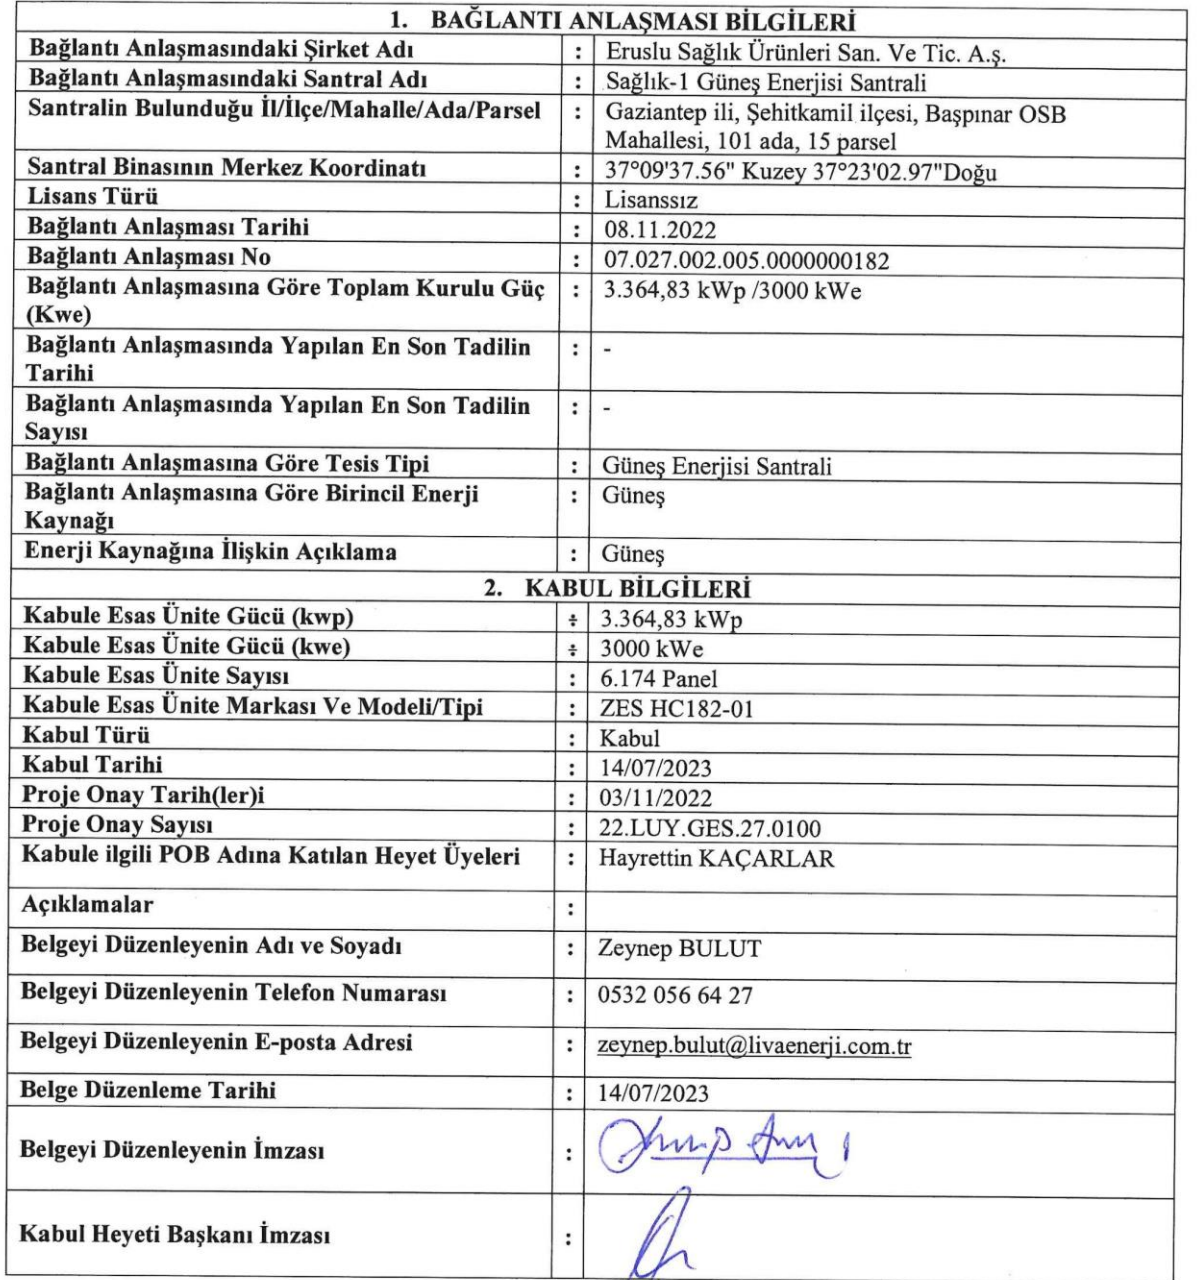 1. BAĞLANTI ANLAŞMASI BİLGİLERİ
Bağlantı Anlaşmasındaki Şirket Adı : Eruslu Sağlık Ürünleri San. Ve Tic. A.ş.
Bağlantı Anlaşmasındaki Santral Adı : Sağlık-1 Güneş Enerjisi Santrali
Santralin Bulunduğu İl/İlçe/Mahalle/Ada/Parsel : Gaziantep ili, Şehitkamil ilçesi, Başpınar OSB
Mahallesi, 101 ada, 15 parsel
Santral Binasının Merkez Koordinatı : 37°09'37.56" Kuzey 37°23'02.97"Doğu
Lisans Türü : Lisanssız
Bağlantı Anlaşması Tarihi : 08.11.2022
Bağlantı Anlaşması No : 07.027.002.005.0000000182
Bağlantı Anlaşmasına Göre Toplam Kurulu Güç : 3.364,83 kWp /3000 kWe
(Kwe)
Bağlantı Anlaşmasında Yapılan En Son Tadilin : -
Tarihi
Bağlantı Anlaşmasında Yapılan En Son Tadilin : -
Sayısı
Bağlantı Anlaşmasına Göre Tesis Tipi : Güneş Enerjisi Santrali
Bağlantı Anlaşmasına Göre Birincil Enerji : Güneş
Kaynağı
Enerji Kaynağına İlişkin Açıklama : Güneş
2. KABUL BİLGİLERİ
Kabule Esas Ünite Gücü (kwp) : 3.364,83 kWp
Kabule Esas Ünite Gücü (kwe) : 3000 kWe
Kabule Esas Ünite Sayısı : 6.174 Panel
Kabule Esas Ünite Markası Ve Modeli/Tipi : ZES HC182-01
Kabul Türü : Kabul
Kabul Tarihi : 14/07/2023
Proje Onay Tarih(ler)i : 03/11/2022
Proje Onay Sayısı : 22.LUY.GES.27.0100
Kabule ilgili POB Adına Katılan Heyet Üyeleri : Hayrettin KAÇARLAR
Açıklamalar :
Belgeyi Düzenleyenin Adı ve Soyadı : Zeynep BULUT
Belgeyi Düzenleyenin Telefon Numarası : 0532 056 64 27
Belgeyi Düzenleyenin E-posta Adresi : zeynep.bulut@livaenerji.com.tr
Belge Düzenleme Tarihi : 14/07/2023
Belgeyi Düzenleyenin İmzası :
Kabul Heyeti Başkanı İmzası :